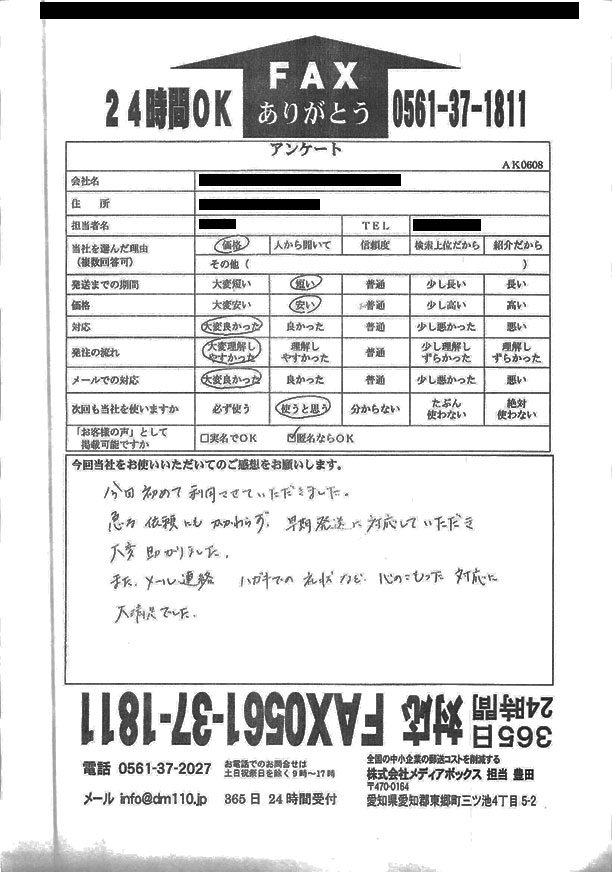 FAX
ありがとう
24時間OK
0561-37-1811
アンケート
AK0608
会社名
住 所
担当者名 TEL
当社を選んだ理由 (複数回答可) 価格 人から聞いて 信頼度 検索上位だから 紹介だから
その他 ( )
発送までの期間 大変短い 短い 普通 少し長い 長い
価格 大変安い 安い 普通 少し高い 高い
対応 大変良かった 良かった 普通 少し悪かった 悪い
発注の流れ 大変理解しやすかった 理解しやすかった 普通 少し理解しずらかった 理解しずらかった
メールでの対応 大変良かった 良かった 普通 少し悪かった 悪い
次回も当社を使いますか 必ず使う 使うと思う 分からない たぶん使わない 絶対使わない
「お客様の声」として掲載可能ですか □実名でOK ☑匿名ならOK
今回当社をお使いいただいてのご感想をお願いします。
今回初めて利用させていただきました。
急な依頼にもかかわらず、早期発送に対応していただき
大変助かりました。
また、メール連絡 ハガキでの礼状など、心のこもった対応に
大満足でした。
365日 24時間 対応 FAX0561-37-1811
電話 0561-37-2027 お電話でのお問合せは 土日祝祭日を除く9時〜17時
メール info@dm110.jp 365日 24時間受付
全国の中小企業の郵送コストを削減する
株式会社メディアボックス 担当 豊田
〒470-0164
愛知県愛知郡東郷町三ツ池4丁目5-2